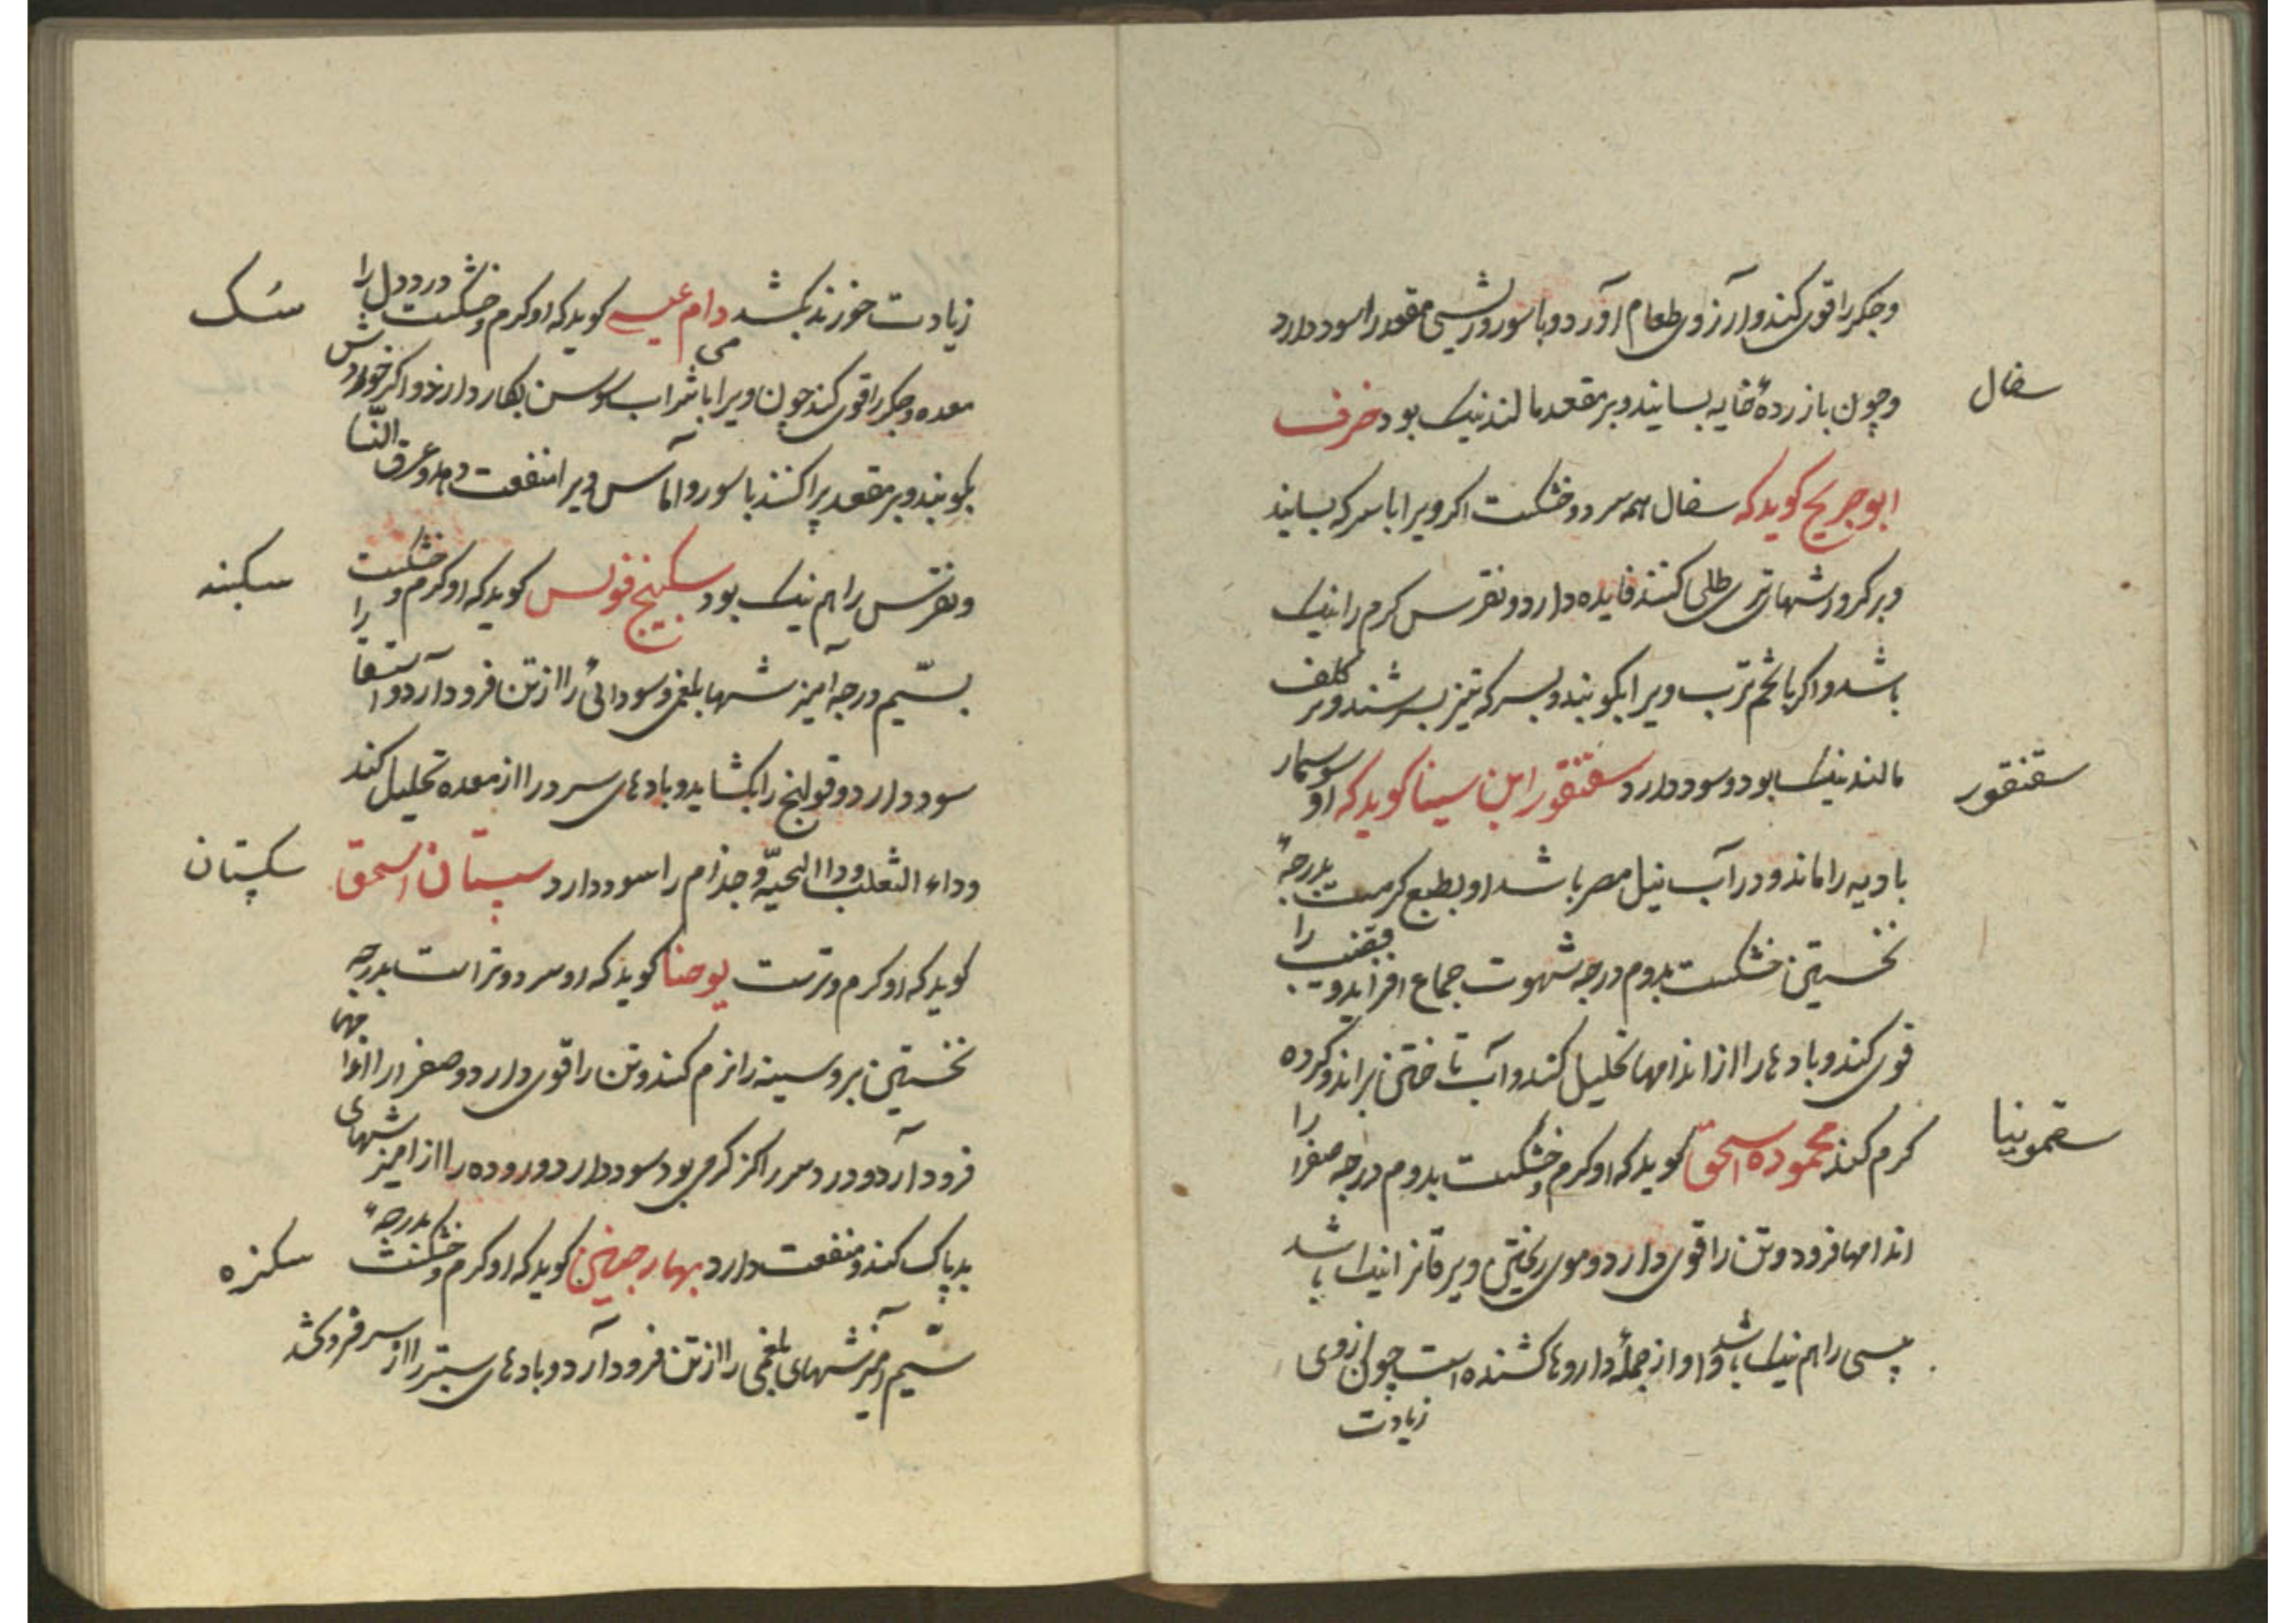 وجکر را قوی کند وآرزوی طعام آورد وباسور وریشی مقعد را سود دارد
سفال
وچون با زرده خایه بسایند وبر مقعد مالند نیک بود خزف
ابو جریح کوید که سفال همه سرد وخشکست اکر ویرا با سرکه بسایند
وبر کر وریشهای تری طلی کنند فایده دارد ونقرس کرم را نیک
باشد واکر با تخم ترب ویرا بکوبند وبسرکه تیز بسرشند وبر کلف
مالند نیک بود وسود دارد سقنقور ابن سینا کوید که او سوسمار
سقنقور
بادیه را ماند ودر آب نیل مصر باشد او بطبع کرمست بدرجهٔ
نخستین خشکست بدوم درجه شهوت جماع افزاید و قضیب را
قوی کند وبادها را از اندامها تحلیل کند وآب تاختن براند وکرده
کرم کند محموده اسحق کوید که او کرم وخشکست بدوم درجه صفرا را
سقمونیا
اندامها فرود وتن را قوی دارد وموی ریختن ویرقان را نیک باشد
پیسی را هم نیک باشد واو از جملهٔ داروها کشنده است چون ازوی
زیادت
زیادت خورند بکشد دام عیسی کوید که او کرم وخشکست درد دل را
سُک
معده وجکر را قوی کند چون ویرا با شراب سوسن بکار دارند واکر خوردش
می
بکوبند وبر مقعد پراکنند باسور وآماس ویرا منفعت دهد وعرق النّسا
ونقرس را هم نیک بود سکبینج فولس کوید که او کرم وخشکست
سکبنه
بسّیم درجه آمیزشها بلغمی وسودائی را از تن فرود آرد واستسقا را
سود دارد وقولنج را بکشاید وبادهای سرد را از معده تحلیل کند
وداء الثعلب وداالحیّه وجذام را سود دارد سپستان اسحق
سکپستان
کوید که او کرم وترست یوحنا کوید که او سرد وتر است بدرجه
نخستین بر وسینه را نرم کند وتن را قوی دارد وصفرا را از
فرود آرد ودرد سر را کز کرمی بود سود دارد وروده را از آمیزشهای
بد پاک کند ومنفعت دارد بهارجنین کوید که او کرم وخشکست بدرجهٔ
سکنزه
سّیم آمیزشهای بلغمی را از تن فرود آرد وبادهای ستبر را از سر فروکشد